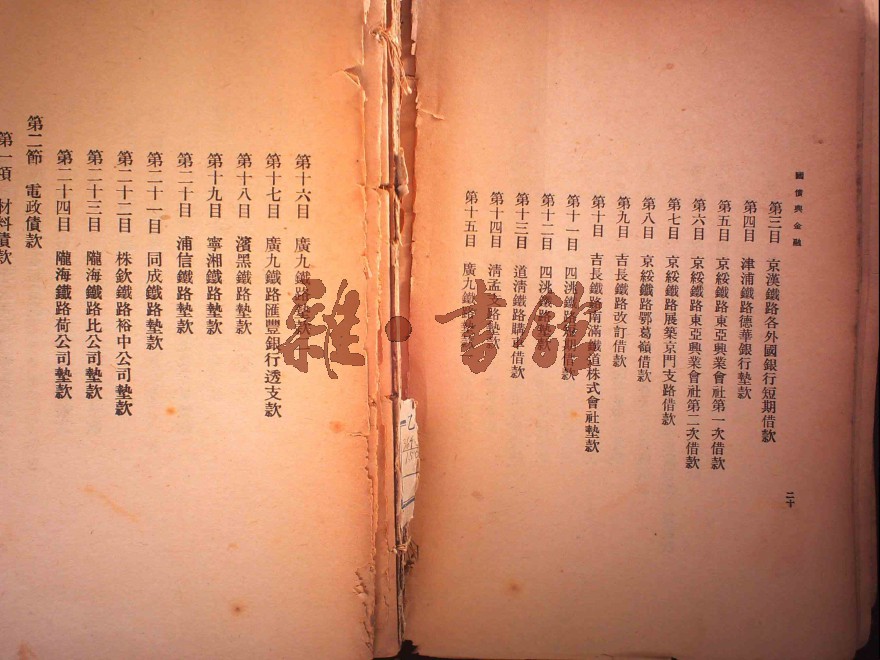 國債與金融
第三目 京漢鐵路各外國銀行短期借款
第四目 津浦鐵路德華銀行墊款
第五目 京綏鐵路東亞興業會社第一次借款
第六目 京綏鐵路東亞興業會社第二次借款
第七目 京綏鐵路展築京門支路借款
第八目 京綏鐵路鄂葛嶺借款
第九目 吉長鐵路改訂借款
第十目 吉長鐵路南滿鐵道株式會社墊款
第十一目 四洮鐵路短期借款
第十二目 四洮鐵路墊款
第十三目 道清鐵路購車借款
第十四目 清孟支路墊款
第十五目 廣九鐵路墊款
二十
第十六目 廣九鐵路墊款
第十七目 廣九鐵路匯豐銀行透支款
第十八目 濱黑鐵路墊款
第十九目 寧湘鐵路墊款
第二十目 浦信鐵路墊款
第二十一目 同成鐵路墊款
第二十二目 株欽鐵路裕中公司墊款
第二十三目 隴海鐵路比公司墊款
第二十四目 隴海鐵路荷公司墊款
第二節 電政債款
第一項 材料債款
雜·書館